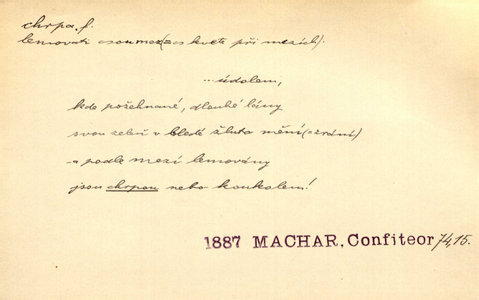 chrpa, f.
lemovati osou mez (= as kvete při mezích).
...údolem,
kde požehnané, dlouhé lány
svou zeleň v bledě žluto mění (= zrání)
a podle mezí lemovány
jsou chrpou nebo koukolem!
1887 MACHAR, Confiteor 74,15.